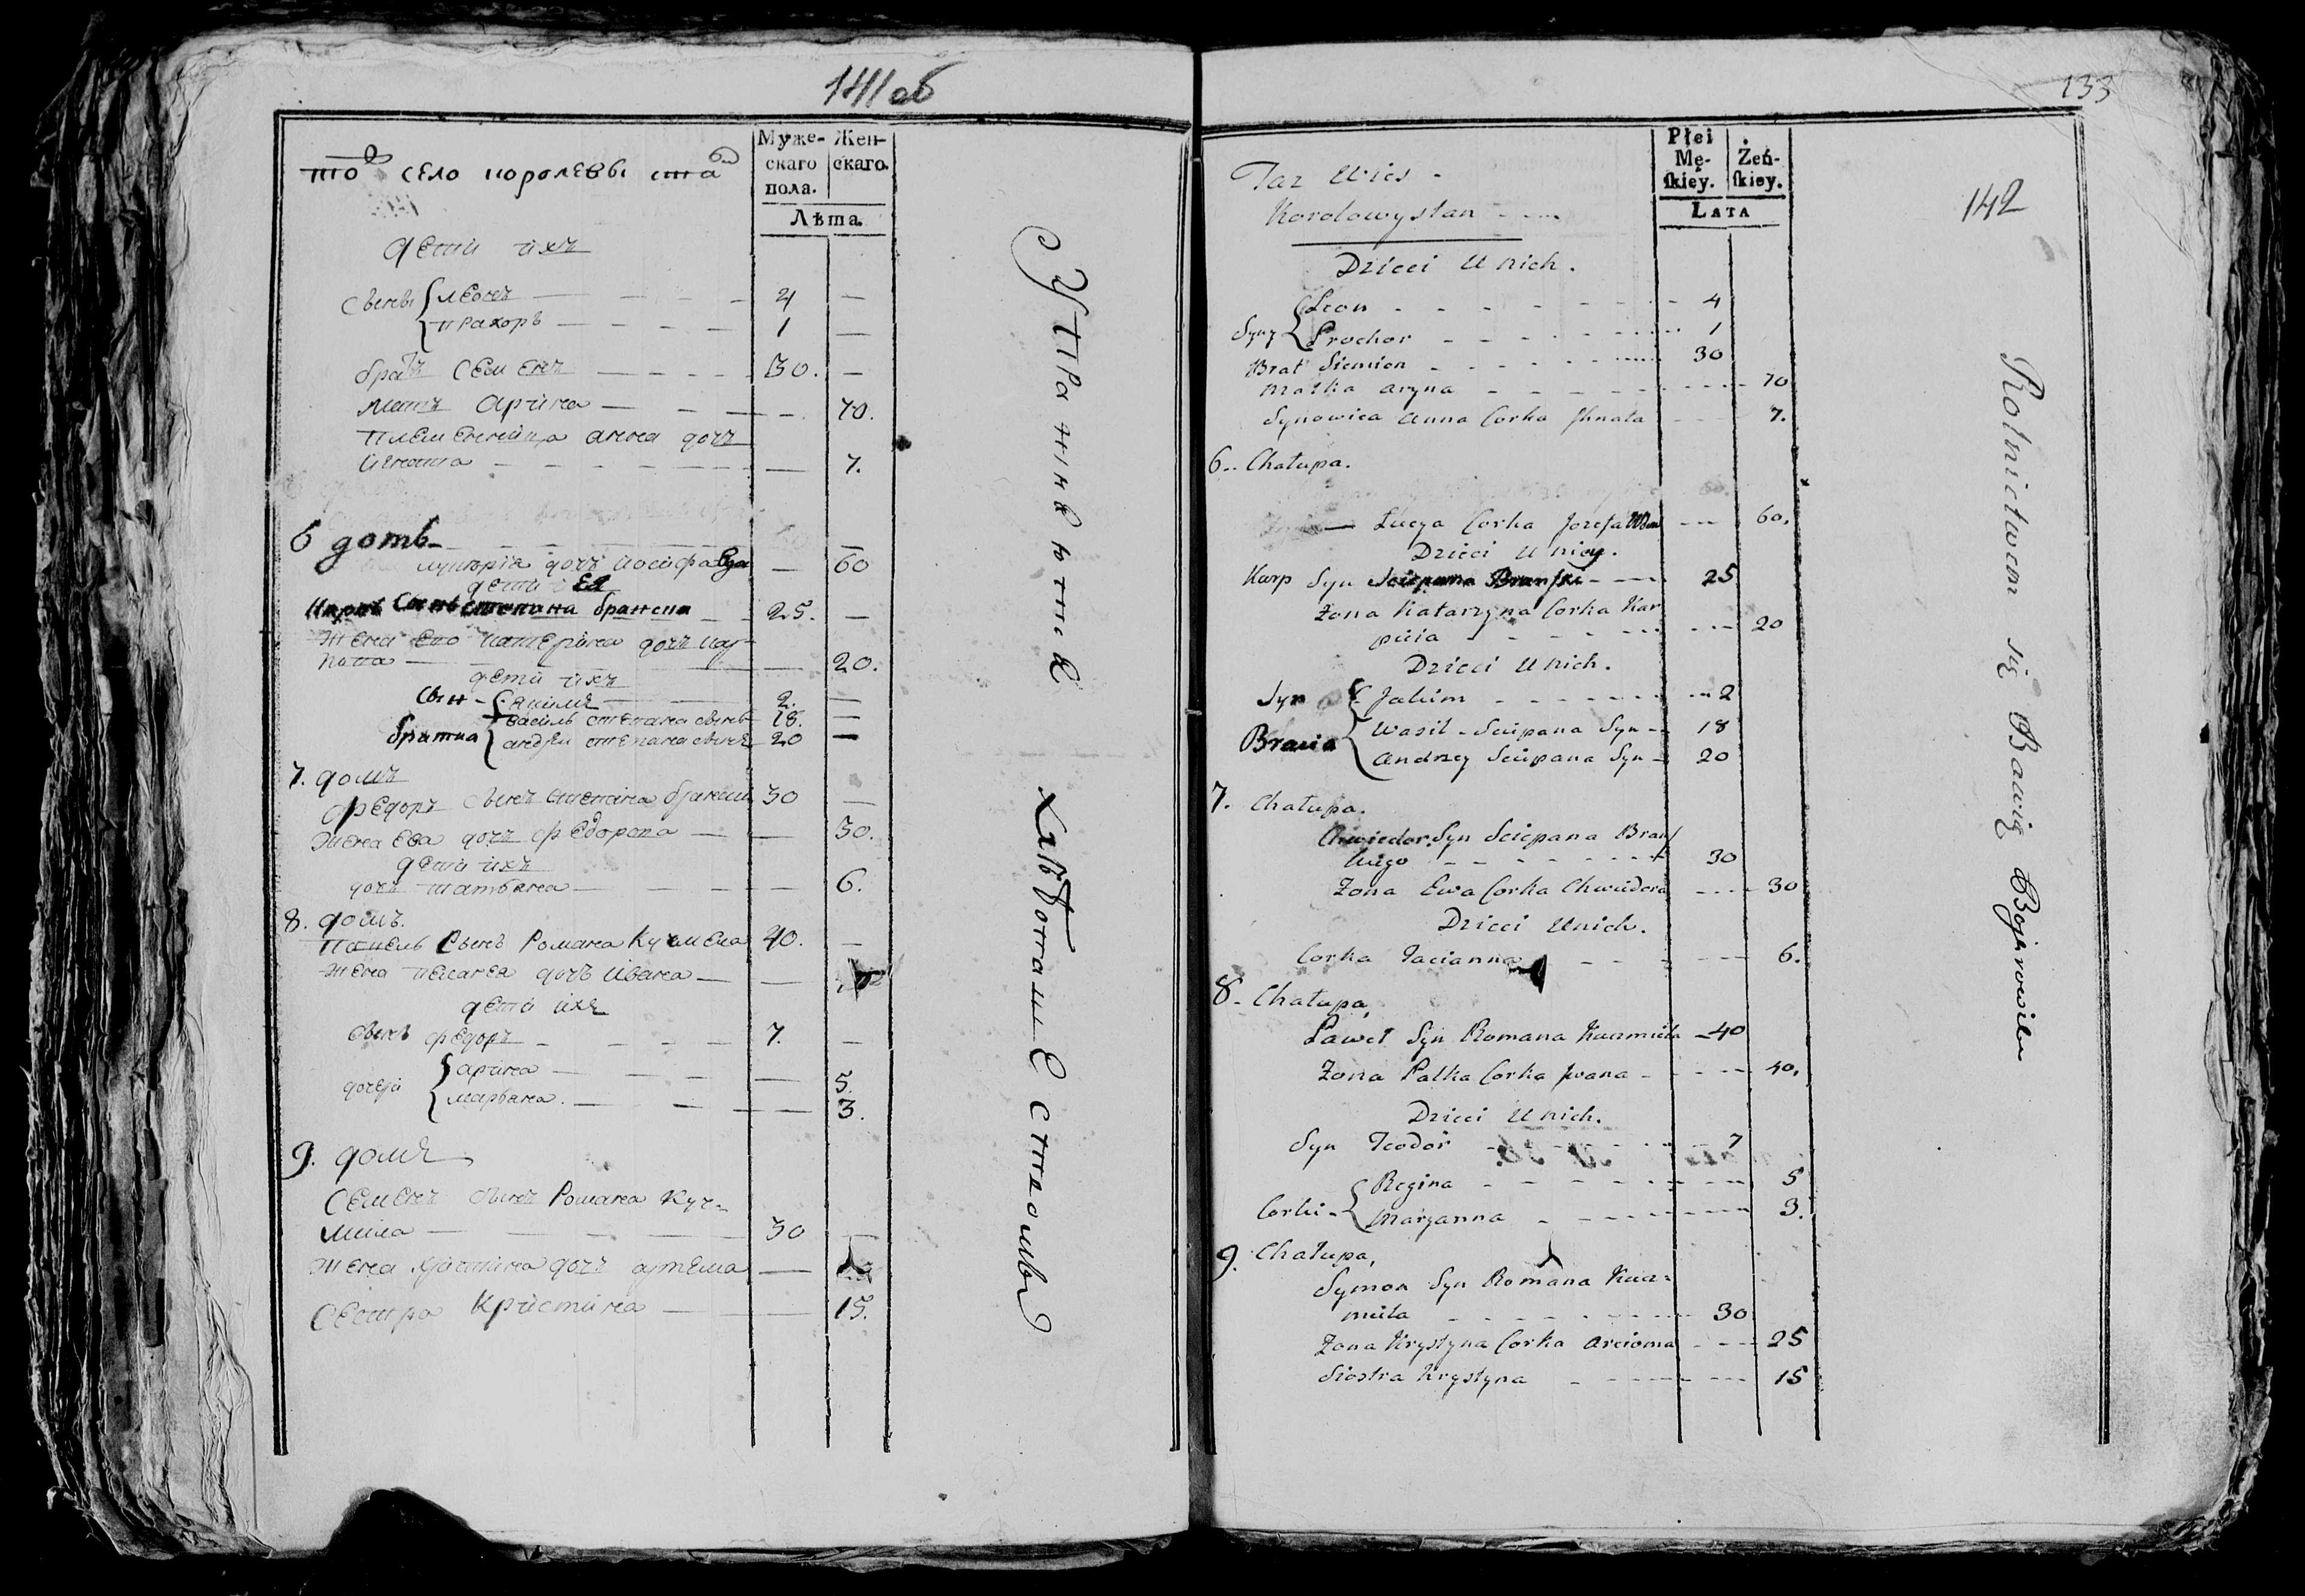 141 об
Муже-
скаго
пола.
Жен-
скаго.
Лѣта
то село королевы ста
дети ихъ
сынвы
леонъ 4 —
прахоръ 1 —
братъ семенъ 30. —
мать арина — 70.
племенница анна дочь
игната — 7.
6 домъ
лукерія дочь иосифа вдо — 60
дети ея
карпъ сынъ степана бранска 25. —
жена его катерина дочь кар-
попа — 20.
дети ихъ
сын якимъ 2. —
василь степана сынъ 18. —
братиа
андрей степана сынъ 20 —
7. домъ
федоръ сынъ степана брански 30 —
жена ева дочь федорова — 30.
дети ихъ
дочь татьяна — 6.
8. домъ.
павелъ сынъ романа кучмела 40. —
жена пелагея дочь ивана —
дети ихъ
сынъ федоръ 7. —
дочери
арина — 5.
марьяна. — 3.
9. домъ
семенъ сынъ романа куч-
мила 30 —
жена христина дочь артема —
сестра кристина — 15.
Упражняются
хлѣбопашествомъ
133
142
Płei
Mę-
ſkiey.
Żeń-
ſkiey.
Lata
Taz Wies -
Korolowystan
Dzieci U nich.
Syny
Leon 4
Prochor 1
Brat Siemion 30
Matka Aryna 70
Synowica Anna Corka Ihnata 7.
6. Chałupa.
Łucya Corka Jozefa Wdo 60.
Dzieci U niey.
Karp Syn Sciepana Branski 25
Zona Katarzyna Corka Kar
pieia 20
Dzieci U nich.
Syn Jakim 2
Bracia
Wasil - Sciepana Syn 18
Andrzey Sciepana Syn 20
7. Chałupa.
Chwiedor Syn Sciepana Brans
kiego 30
Zona Ewa Corka Chwiedora 30
Dzieci U nich.
Corka Tacianna 6.
8. Chałupa,
Paweł Syn Romana Kuczmieła 40
Zona Pałka Corka Jwana 40.
Dzieci U nich.
Syn Teodor 7
Corki
Regina 5
Maryanna 3.
9. Chałupa,
Symon Syn Romana Kucz-
mieła 30
Zona Krystyna Corka Arcioma 25
Siostra Krystyna 15
Rolnictwem się Bawią